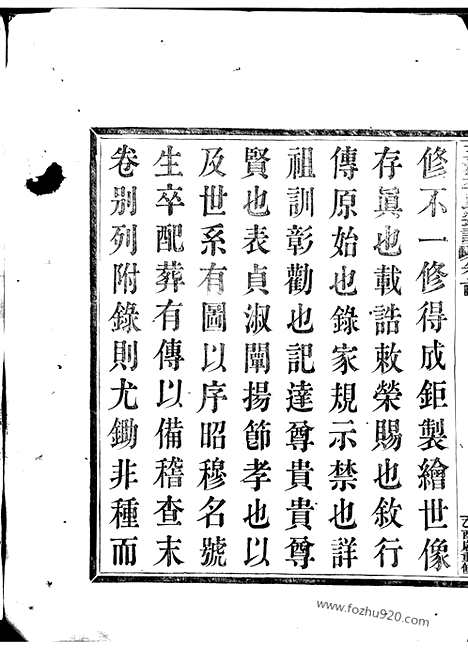 修不一修得成鉅製繪世像
存眞也載誥敕榮賜也敘行
傳原始也錄家規示禁也詳
祖訓彰勸也記達尊貴貴尊
賢也表貞淑闡揚節孝也以
及世系有圖以序昭穆名號
生卒配葬有傳以備稽查末
卷別列附錄則尤鋤非種而
www.fozhu920.com